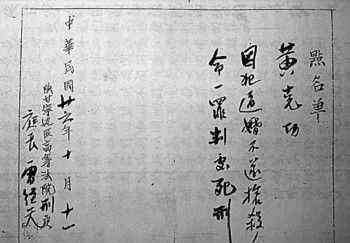 點名單
黃克功
因犯逼婚不遂槍殺人
命一罪判處死刑
中華民國廿六年十月十一
陝甘寧邊區高等法院刑庭
庭長 雷經天